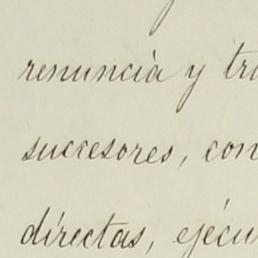 renuncia y tra
succesores, con
directas, ejécu